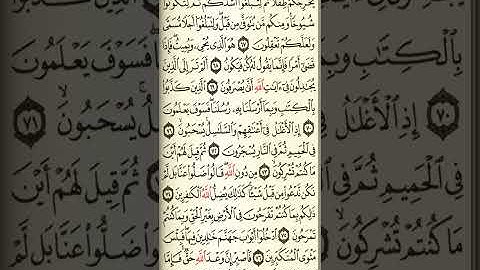 يُخْرِجُكُمْ طِفْلًا ثُمَّ لِتَبْلُغُوٓا۟ أَشُدَّكُمْ ثُمَّ لِتَكُونُوا۟
شُيُوخًا وَمِنكُم مَّن يُتَوَفَّىٰ مِن قَبْلُ وَلِتَبْلُغُوٓا۟ أَجَلًا مُّسَمًّى
وَلَعَلَّكُمْ تَعْقِلُونَ ٦٧ هُوَ ٱلَّذِى يُحْىِۦ وَيُمِيتُ فَإِذَا
قَضَىٰٓ أَمْرًا فَإِنَّمَا يَقُولُ لَهُۥ كُن فَيَكُونُ ٦٨ أَلَمْ تَرَ إِلَى ٱلَّذِينَ
يُجَٰدِلُونَ فِىٓ ءَايَٰتِ ٱللَّهِ أَنَّىٰ يُصْرَفُونَ ٦٩ ٱلَّذِينَ كَذَّبُوا۟
بِٱلْكِتَٰبِ وَبِمَآ أَرْسَلْنَا بِهِۦ رُسُلَنَا فَسَوْفَ يَعْلَمُونَ
٧٠ إِذِ ٱلْأَغْلَٰلُ فِىٓ أَعْنَٰقِهِمْ وَٱلسَّلَٰسِلُ يُسْحَبُونَ ٧١
فِى ٱلْحَمِيمِ ثُمَّ فِى ٱلنَّارِ يُسْجَرُونَ ٧٢ ثُمَّ قِيلَ لَهُمْ أَيْنَ
مَا كُنتُمْ تُشْرِكُونَ ٧٣ مِن دُونِ ٱللَّهِ قَالُوا۟ ضَلُّوا۟ عَنَّا بَل لَّمْ
نَكُن نَّدْعُوا۟ مِن قَبْلُ شَيْـًٔا كَذَٰلِكَ يُضِلُّ ٱللَّهُ ٱلْكَٰفِرِينَ ٧٤
ذَٰلِكُم بِمَا كُنتُمْ تَفْرَحُونَ فِى ٱلْأَرْضِ بِغَيْرِ ٱلْحَقِّ وَبِمَا كُنتُمْ
تَمْرَحُونَ ٧٥ ٱدْخُلُوٓا۟ أَبْوَٰبَ جَهَنَّمَ خَٰلِدِينَ فِيهَا فَبِئْسَ
مَثْوَى ٱلْمُتَكَبِّرِينَ ٧٦ فَٱصْبِرْ إِنَّ وَعْدَ ٱللَّهِ حَقٌّ فَإِمَّا